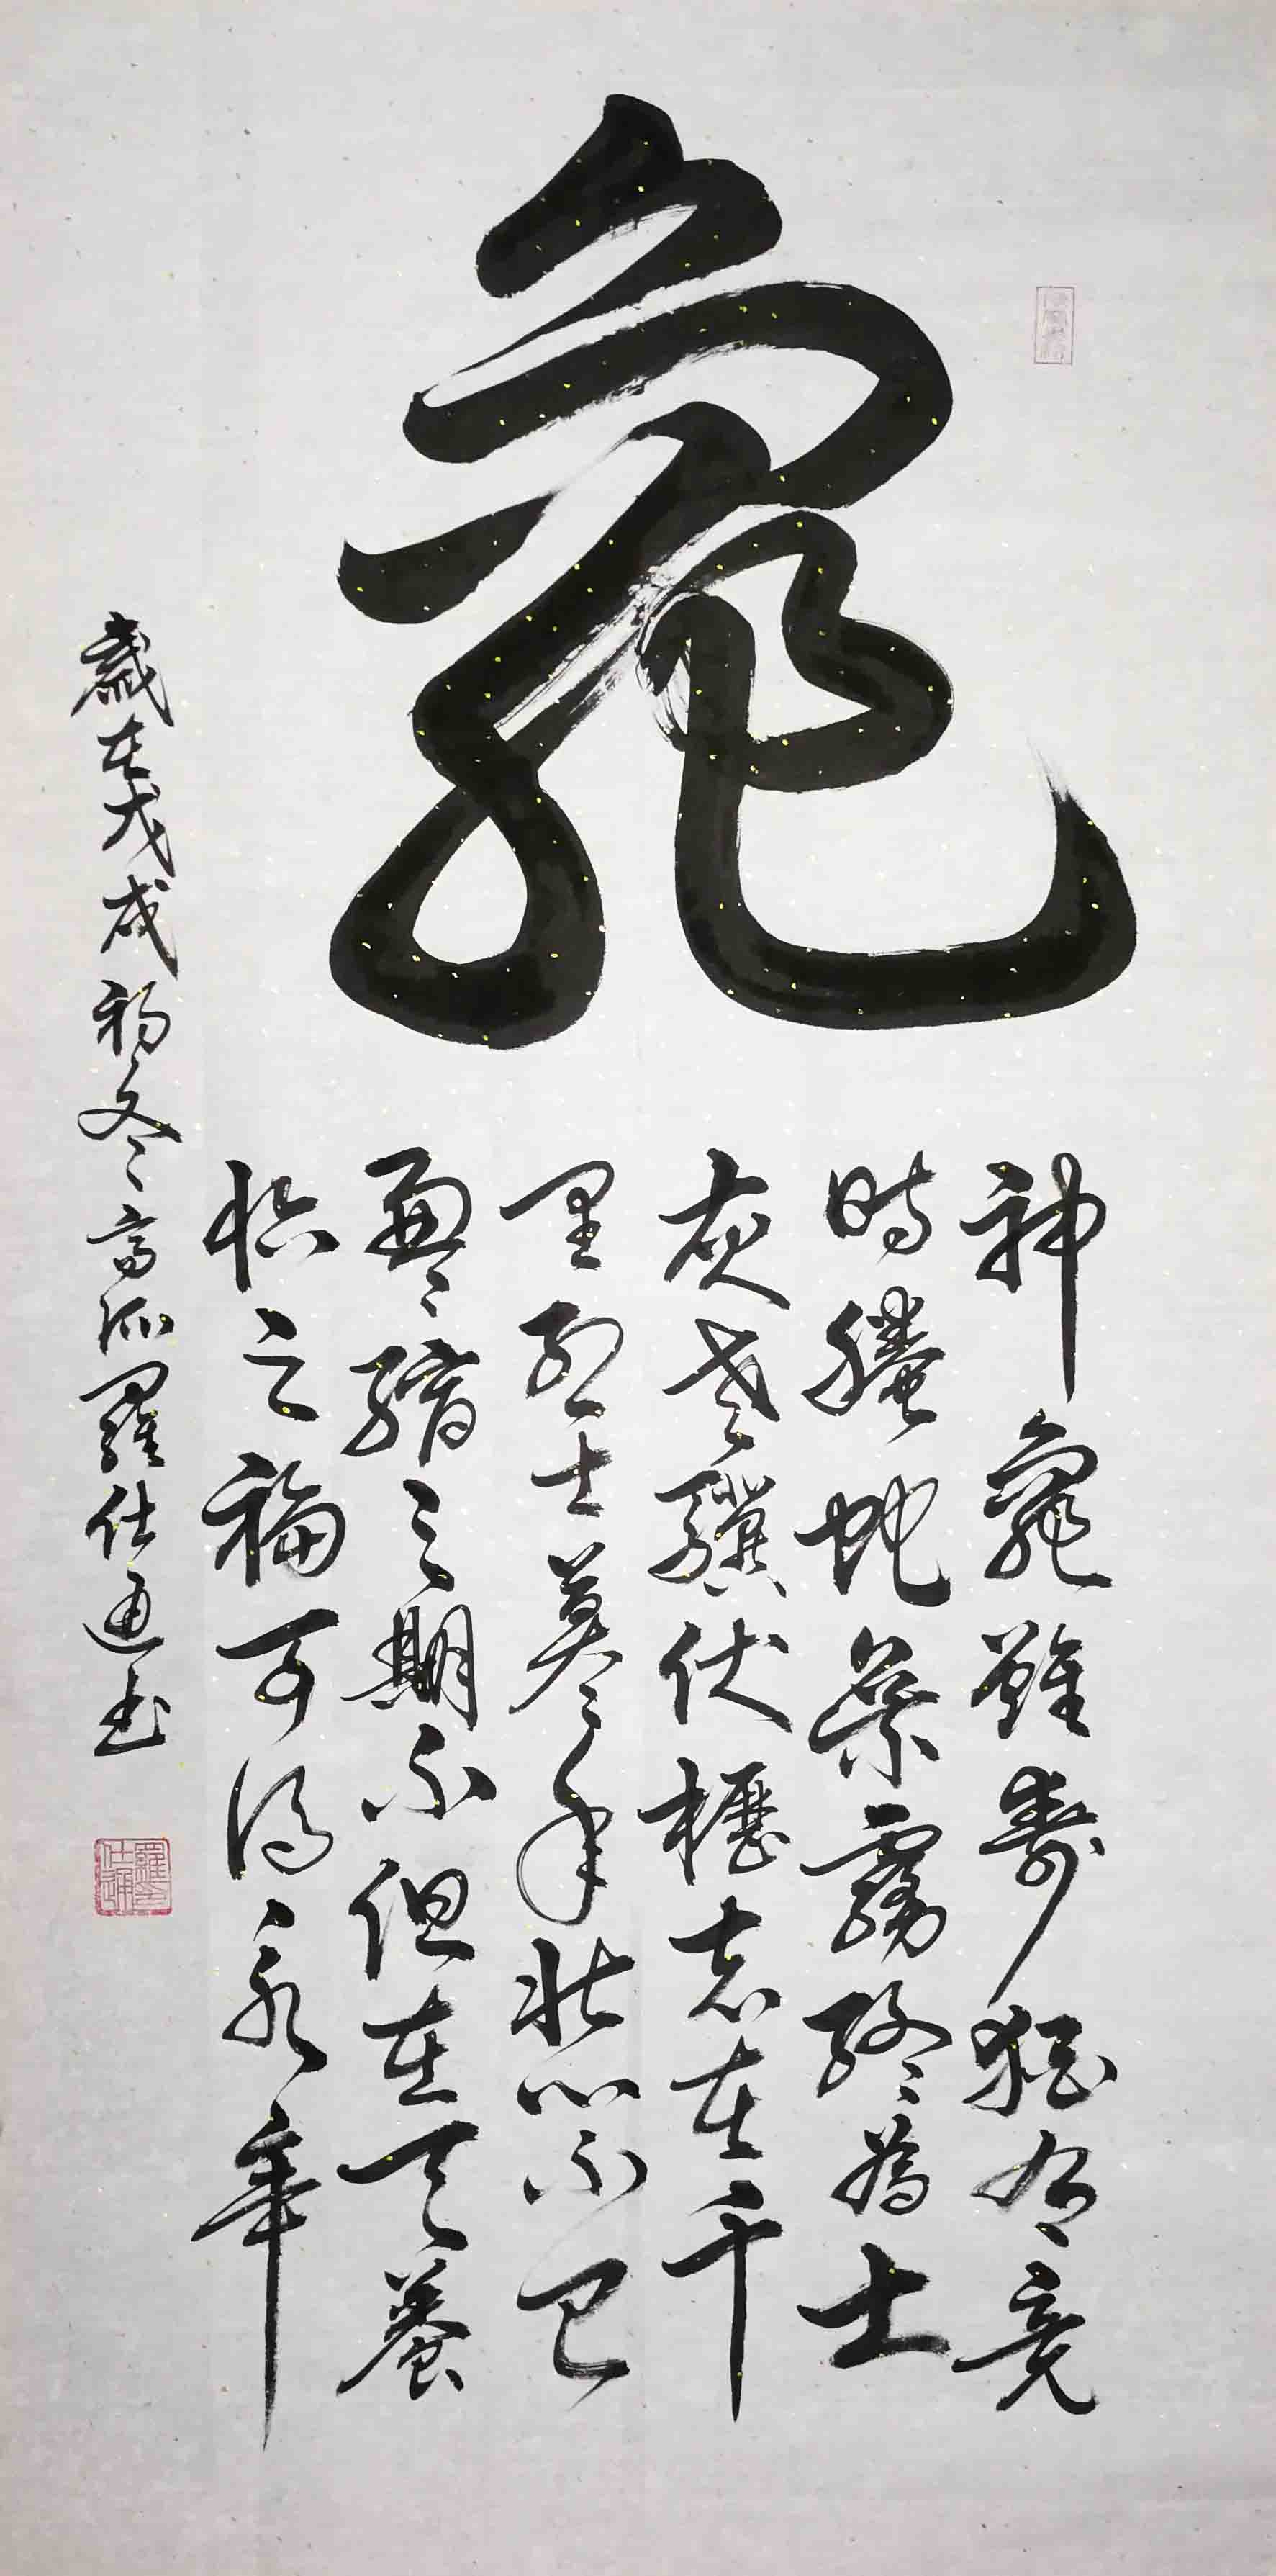 龜
神龜雖壽猶有竟
時螣蛇乘霧終為土
灰老驥伏櫪志在千
里烈士暮年壯心不已
盈縮之期不但在天養
怡之福可得永年
歲在戊戌初冬高羅仕通書
羅仕通